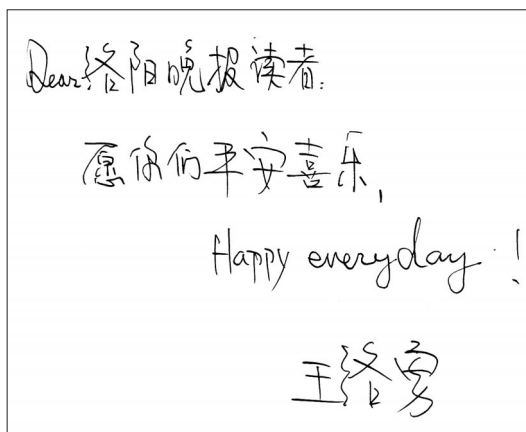 Dear洛阳晚报读者:
愿你们平安喜乐,
Happy everyday!
王洛勇